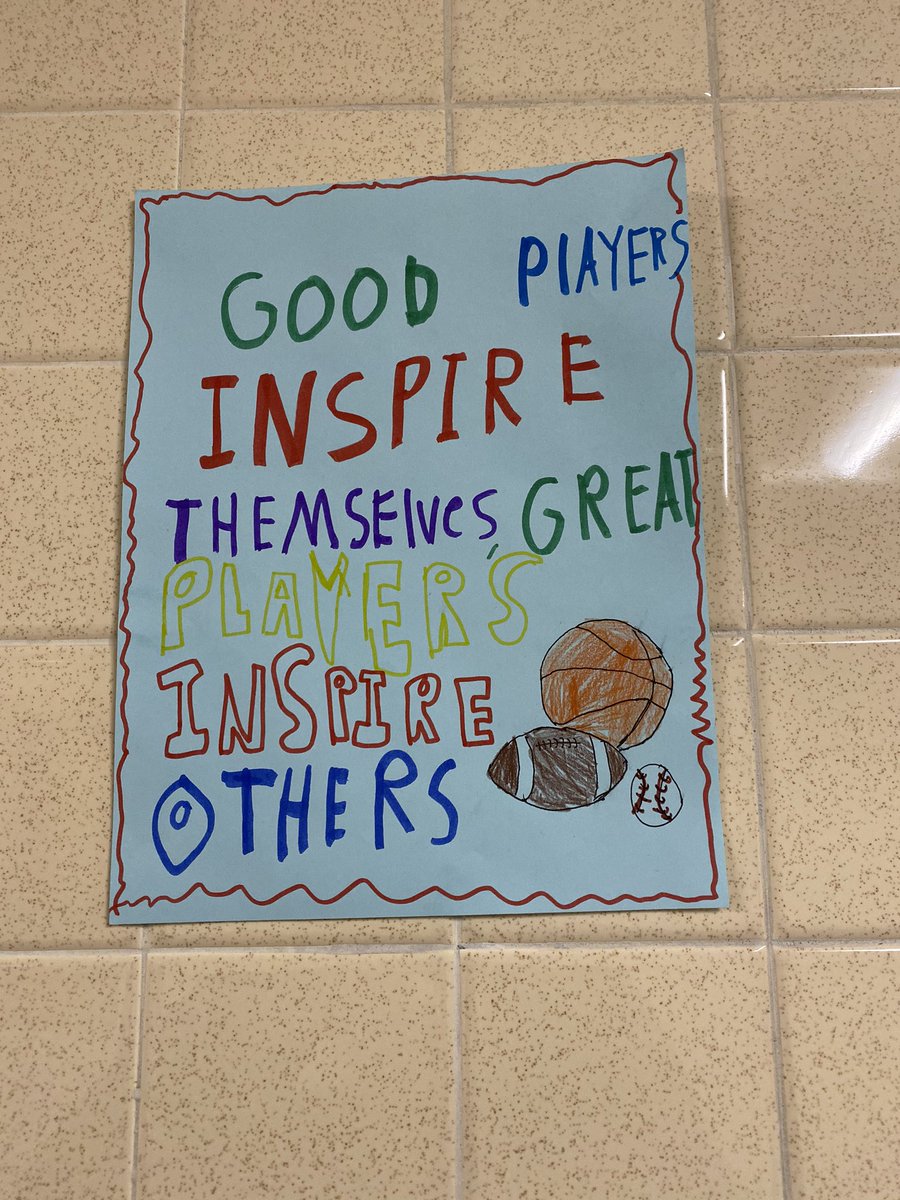 GOOD PlAYERS
INSPIRE
THEMSElVES, GREAT
PLAYER'S
INSPIRE
OTHERS